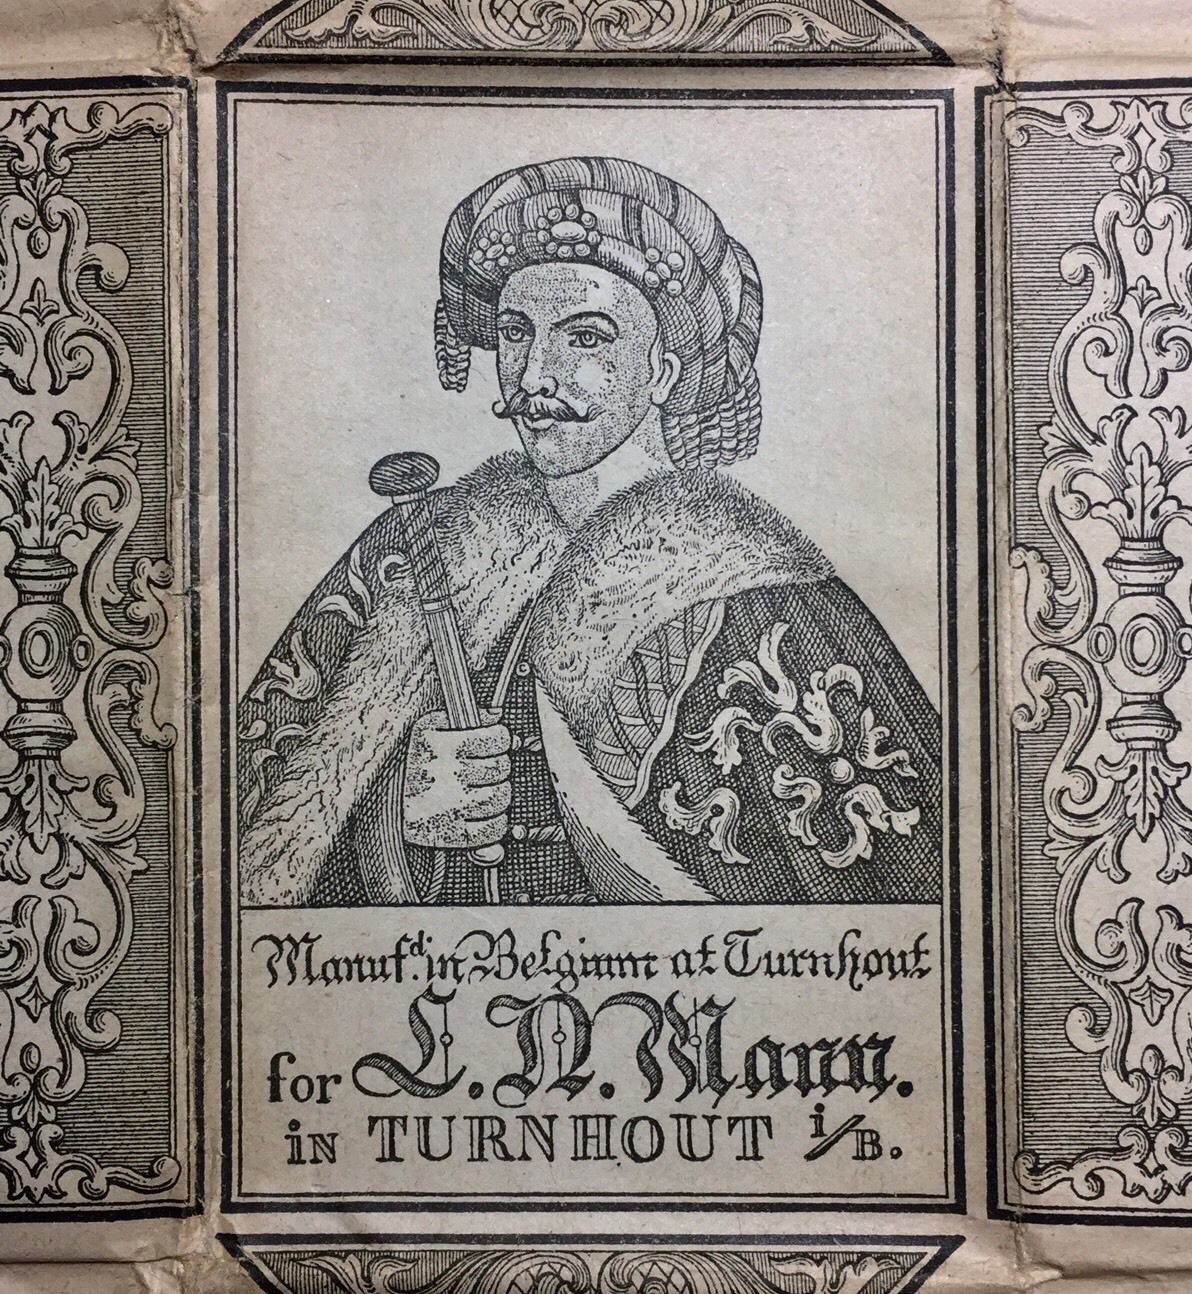 Manufd. in Belgium at Turnhout
for L. N. Mann.
in TURNHOUT i/B.